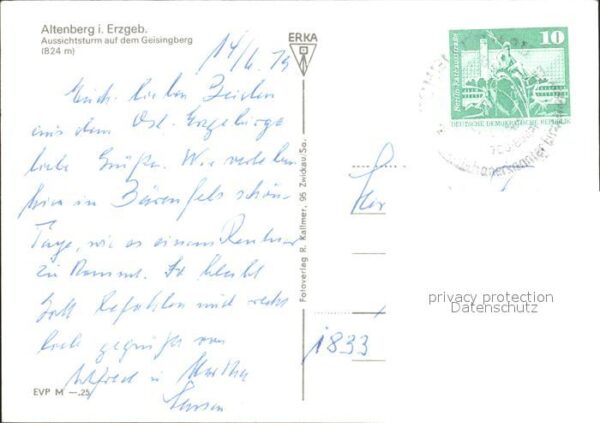 Altenberg i. Erzgeb.
Aussichtsturm auf dem Geisingberg
(824 m)
ERKA
14/6. 79
Euch lieben Beiden
aus dem Ost. Erzgebirge
liebe Grüße. Wir verleben
hier in Bärenfels schöne
Tage, wie es einem Rentner
zu kommt. So bleibt
Gott befohlen und recht
lieb gegrüßt von
Alfred u. Martha
EVP M —.25
Fotoverlag R. Kallmer, 95 Zwickau/Sa.
10
Berlin-Rathausstraße
DEUTSCHE DEMOKRATISCHE REPUBLIK
1833
privacy protection
Datenschutz